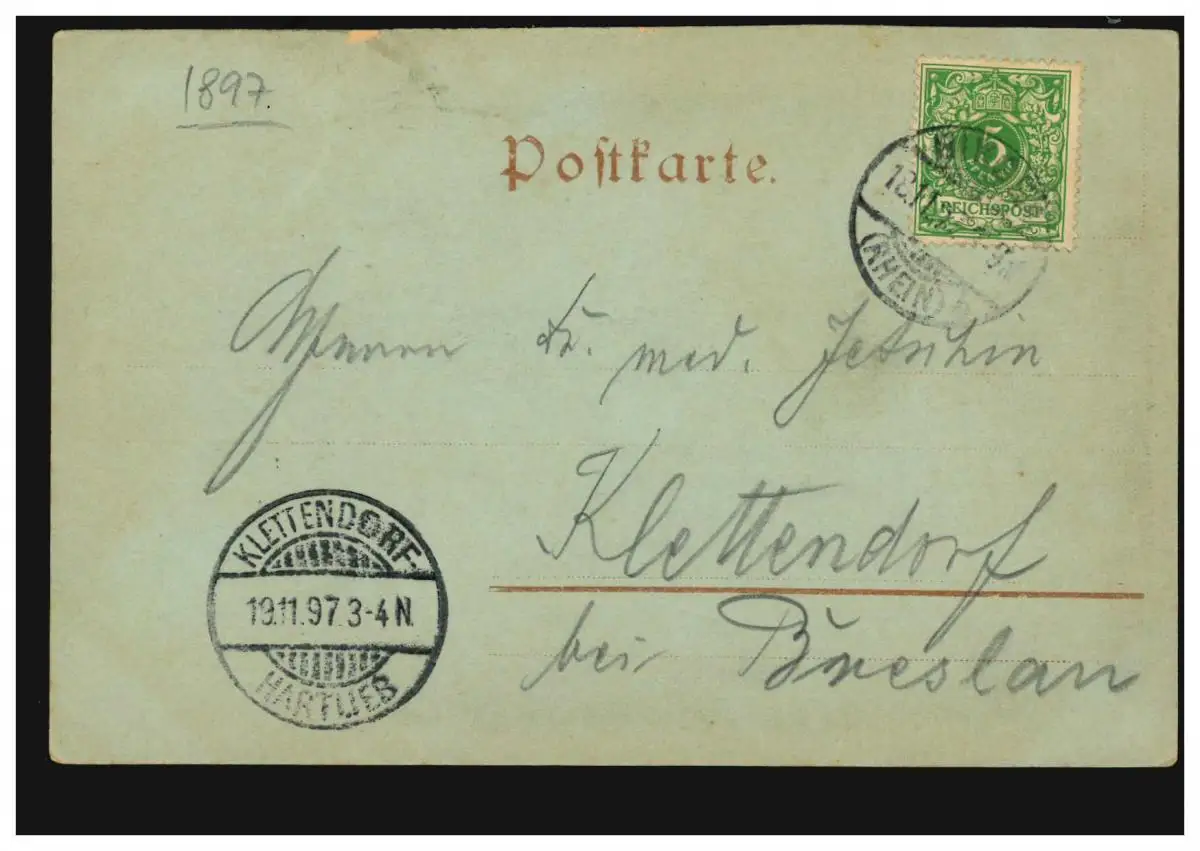 1897
Postkarte.
5
REICHSPOST
18.11
(RHEIN)
Herrn Dr. med.
Klettendorf
bei Breslau
KLETTENDORF-
19.11.97.3-4N.
HARTLIEB